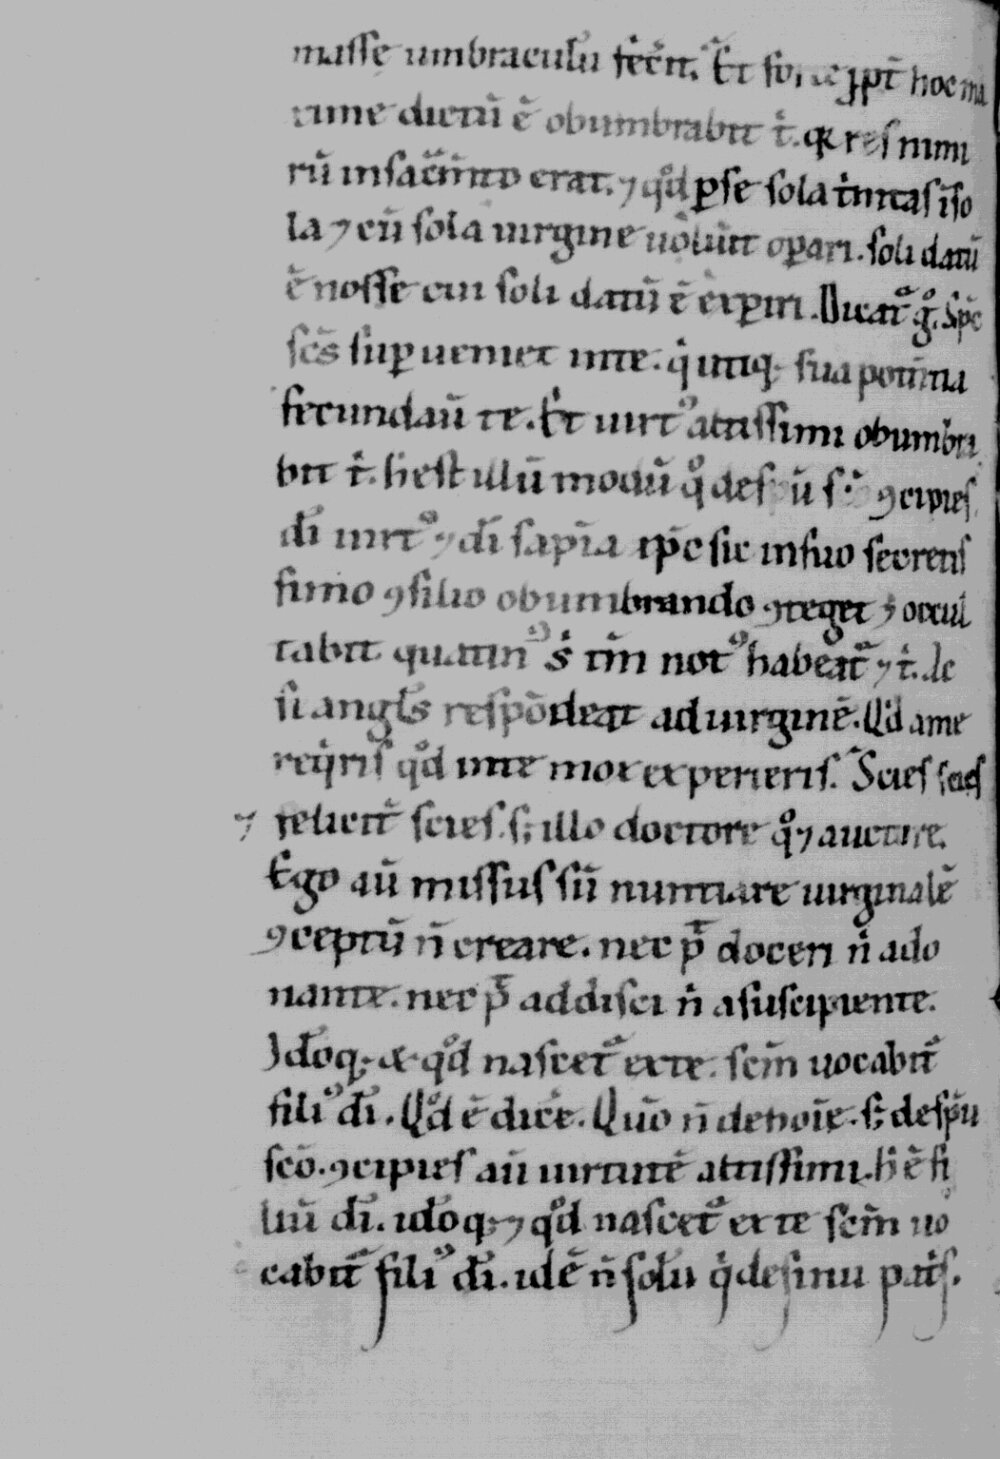 masse umbraculũ fec̃it. Et forte ꝓpt̃ hoc ma
xime dictũ ẽ obumbrabit t̾. q̃ res nimi
rũ in sac̃m̃to erat. ⁊ qͦd ꝑ se sola t̾nitas ĩ so
la ⁊ cũ sola uirgine uoluit oꝑari. soli datũ
ẽ nosse cui soli datũ ẽ exꝑiri. Dicat᷑ gͦ. Sp̃c
sc̃s suꝑueniet in te. q̾ utiq; sua potñtia
fecundaũ te. Et uirtꝰ altissimi obumbra
bit t̾. h̾ est illũ modũ qͦ de sp̃u sc̃o ꝯcipies.
dĩ uirtꝰ ⁊ dĩ sapĩa xp̃c sic in suo secretis
simo ꝯsilio obumbrando ꝯteget ⁊ occul
tabit quatinꝰ s̾ tm̃ notꝰ habeat᷑ ⁊ t̾. Ac
si angl̃s respõdeat ad uirginẽ. Qͥd a me
req̾ris qͦd in te mox experieris. Scies scies
⁊ felicit̃ scies. s; illo doctore qͦ ⁊ auctore.
Ego aũ missus sũ nuntiare uirginalẽ
ꝯceptũ ñ creare. nec p̃t doceri n̾ a do
nante. nec p̃t addisci n̾ a suscipiente.
Idõq; & qͦd nascet᷑ ex te. sc̃m uocabit᷑
filiꝰ dĩ. Qͦd ẽ dic̃e. Quõ ñ de hoĩe. s; de sp̃u
sc̃o. ꝯcipies aũ uirtutẽ altissimi. h̾ ẽ fi
liũ dĩ. idõq; ⁊ qͦd nascet᷑ ex te sc̃m uo
cabit᷑ filiꝰ dĩ. idẽ ñ solũ q̾ de sinu pat̾s.